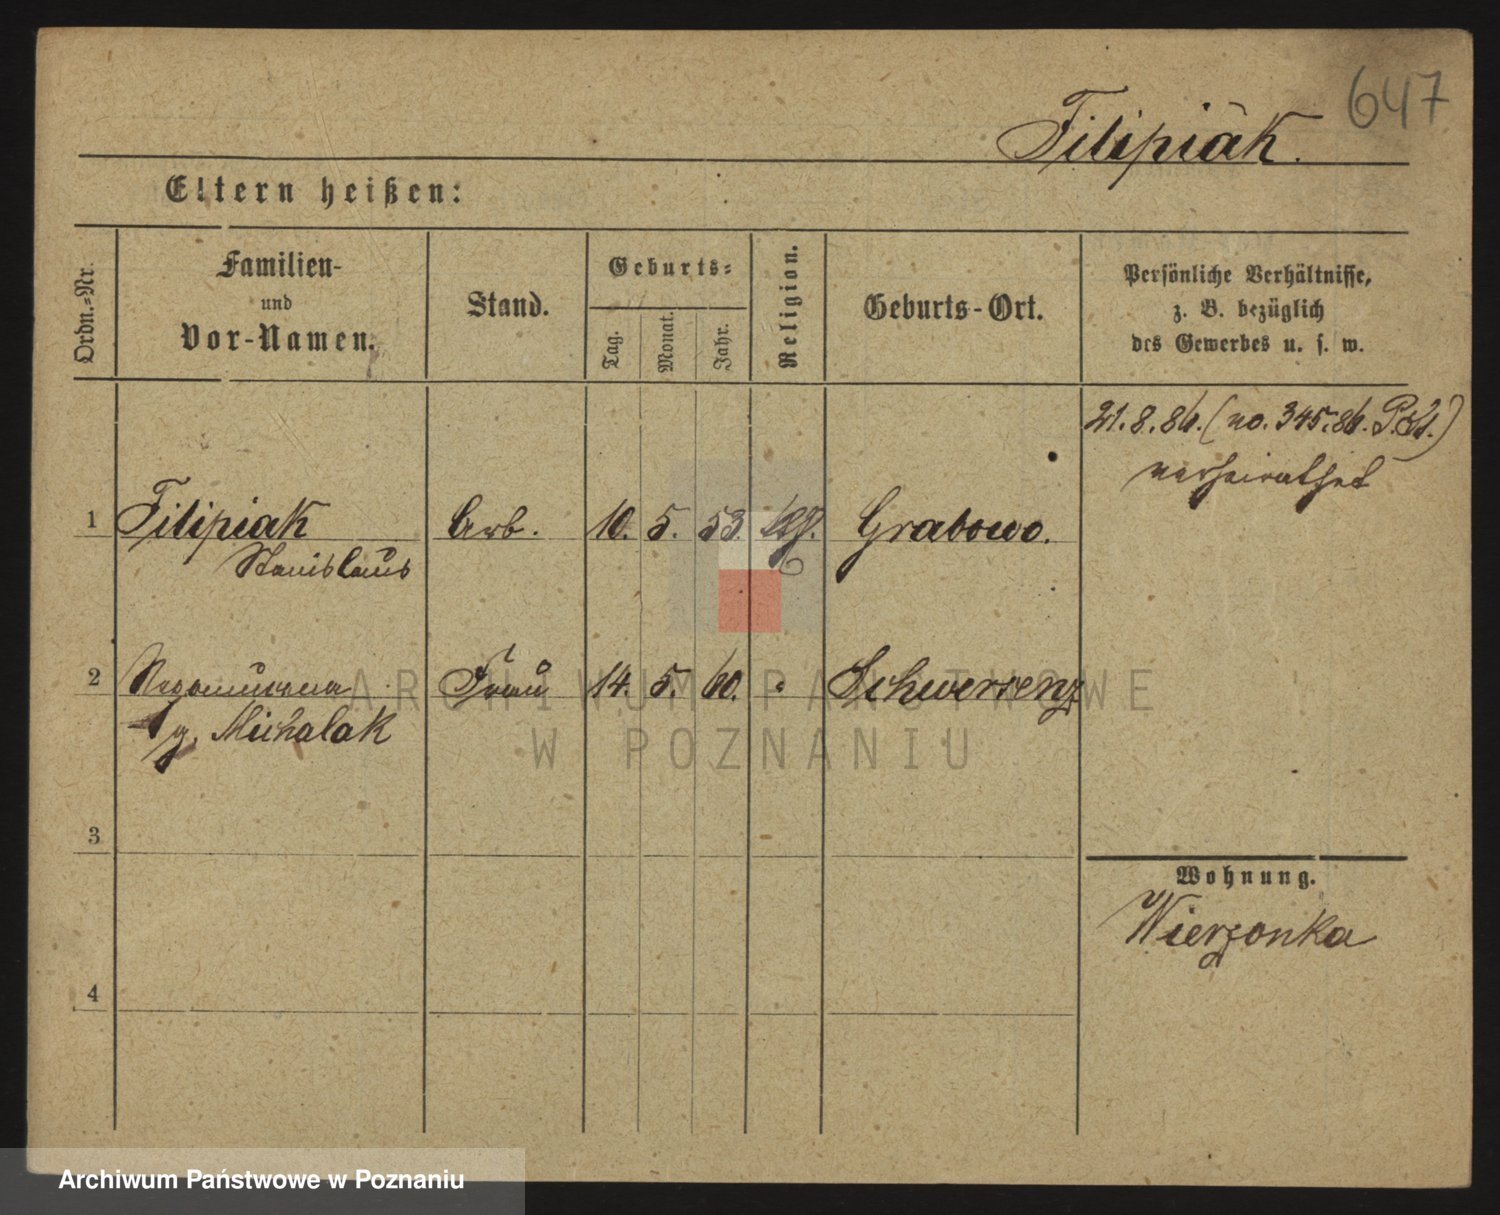 647
Filipiak.
Eltern heißen:
Ordn.=Nr.
Familien-
und
Vor-Namen.
Stand.
Geburts=
Tag.
Monat.
Jahr.
Religion.
Geburts-Ort.
Persönliche Verhältnisse,
z. B. bezüglich
des Gewerbes u. s. w.
21.8.86. (no. 345.86.
verheirathet
1 Filipiak Arb. 10. 5. 53. Grabowo.
Stanislaus
2 Frau 14. 5. 60. " Schwersenz
g. Michalak
3
4
Wohnung.
Wierzonka
ARCHIWUM PAŃSTWOWE
W POZNANIU
Archiwum Państwowe w Poznaniu